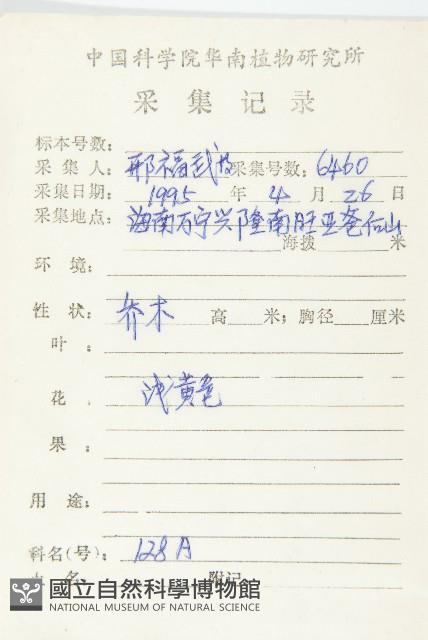 中国科学院华南植物研究所
采集记录
标本号数：
采集人：邢福武 采集号数：6460
采集日期：1995年4月26日
采集地点：海南万宁兴隆南旺亚爸仙山
海拨 米
环境：
性状：乔木 高 米；胸径 厘米
叶：
花. 浅黄色
果：
用途：
科名(号)：128A
附记
國立自然科學博物館
NATIONAL MUSEUM OF NATURAL SCIENCE